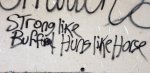 Strong like
Buffalo Hung like Horse